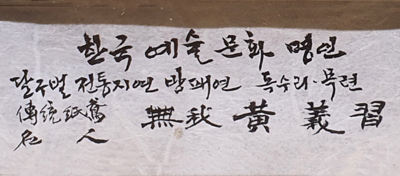 한국 예술 문화 명인
달구벌 전통지연 방패연 독수리·묵련
傳統紙鳶 無我 黃義習
名人